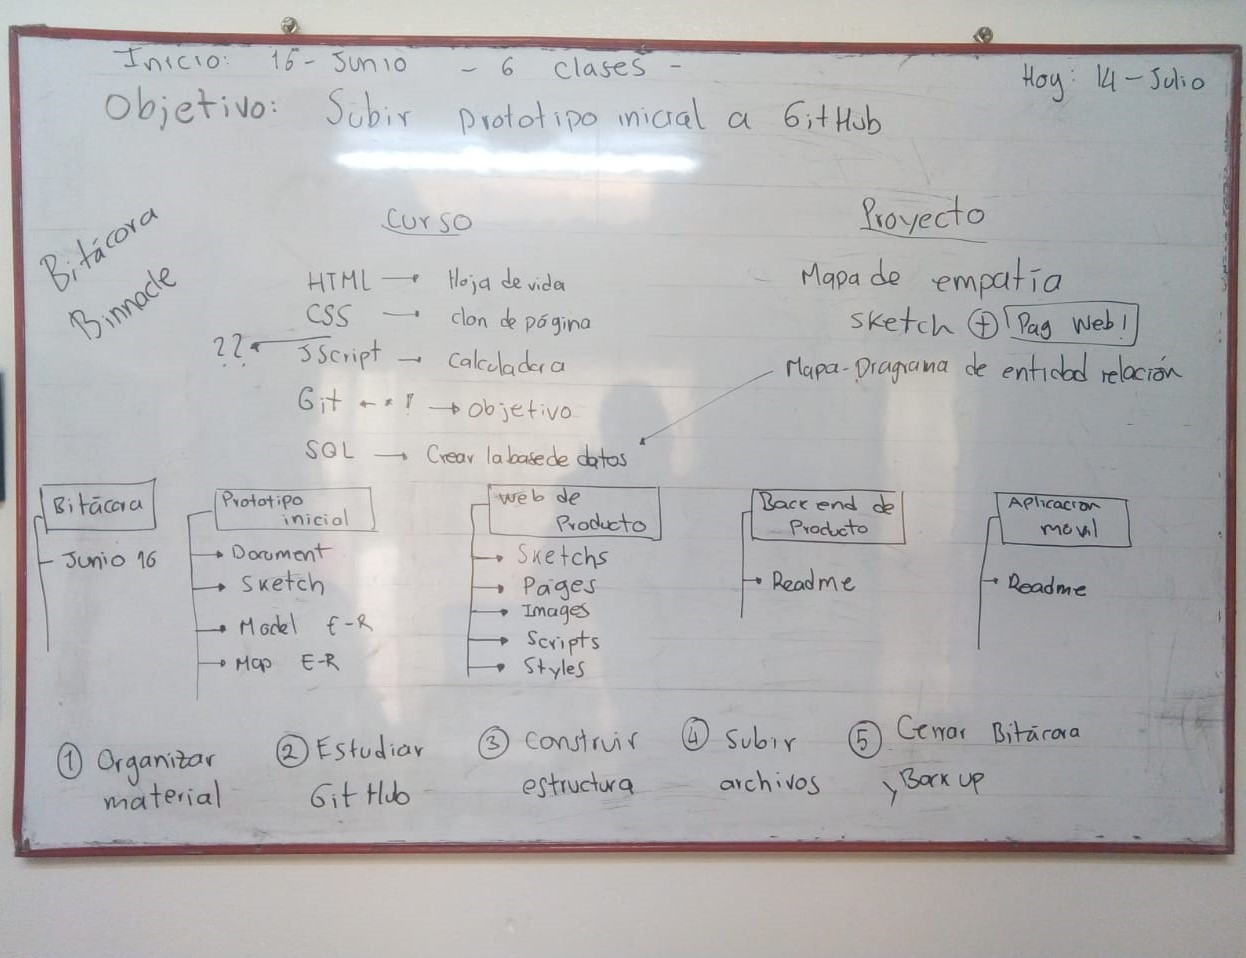 Inicio: 16-Junio - 6 clases -
Hoy: 14-Julio
Objetivo: Subir prototipo inicial a GitHub
Bitácora
Binnacle
Curso
HTML → Hoja de vida
CSS → clon de página
?? ← JScript → Calculadora
Git ←*! → Objetivo
SQL → Crear la base de datos
Proyecto
Mapa de empatía
Sketch + Pag Web!
Mapa-Diagrama de entidad relación
Bitácora
Junio 16
Prototipo
inicial
→ Document
→ Sketch
→ Model E-R
→ Map E-R
Web de
Producto
→ Sketchs
→ Pages
→ Images
→ Scripts
→ Styles
Back end de
Producto
→ Readme
Aplicación
móvil
→ Readme
① Organizar
material
② Estudiar
GitHub
③ Construir
estructura
④ Subir
archivos
⑤ Cerrar Bitácora
y Back up